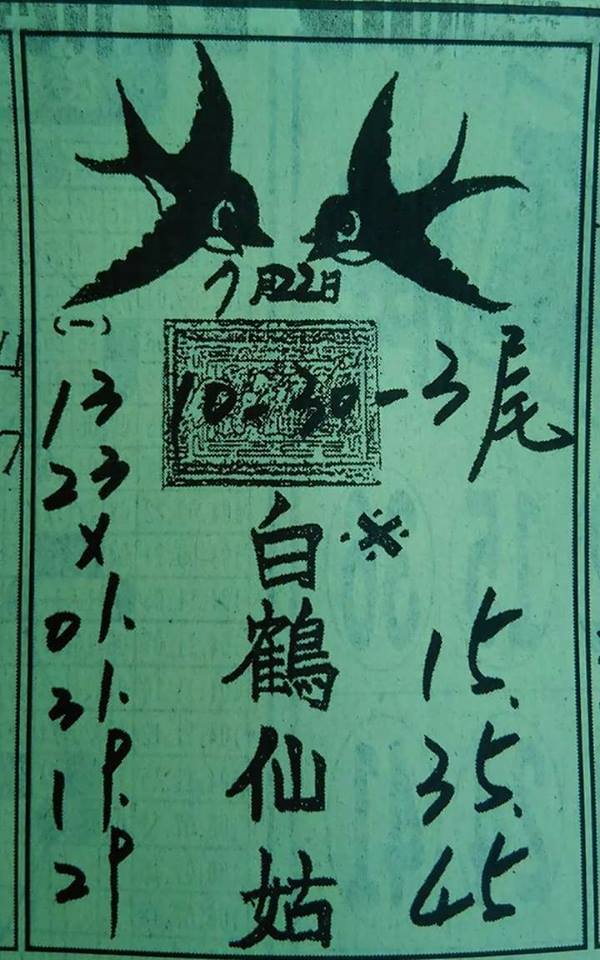 7月22日
(一)
10-30-3尾
13
23
X
01.
31.
19.
29
※
白鶴仙姑
15.
35.
45